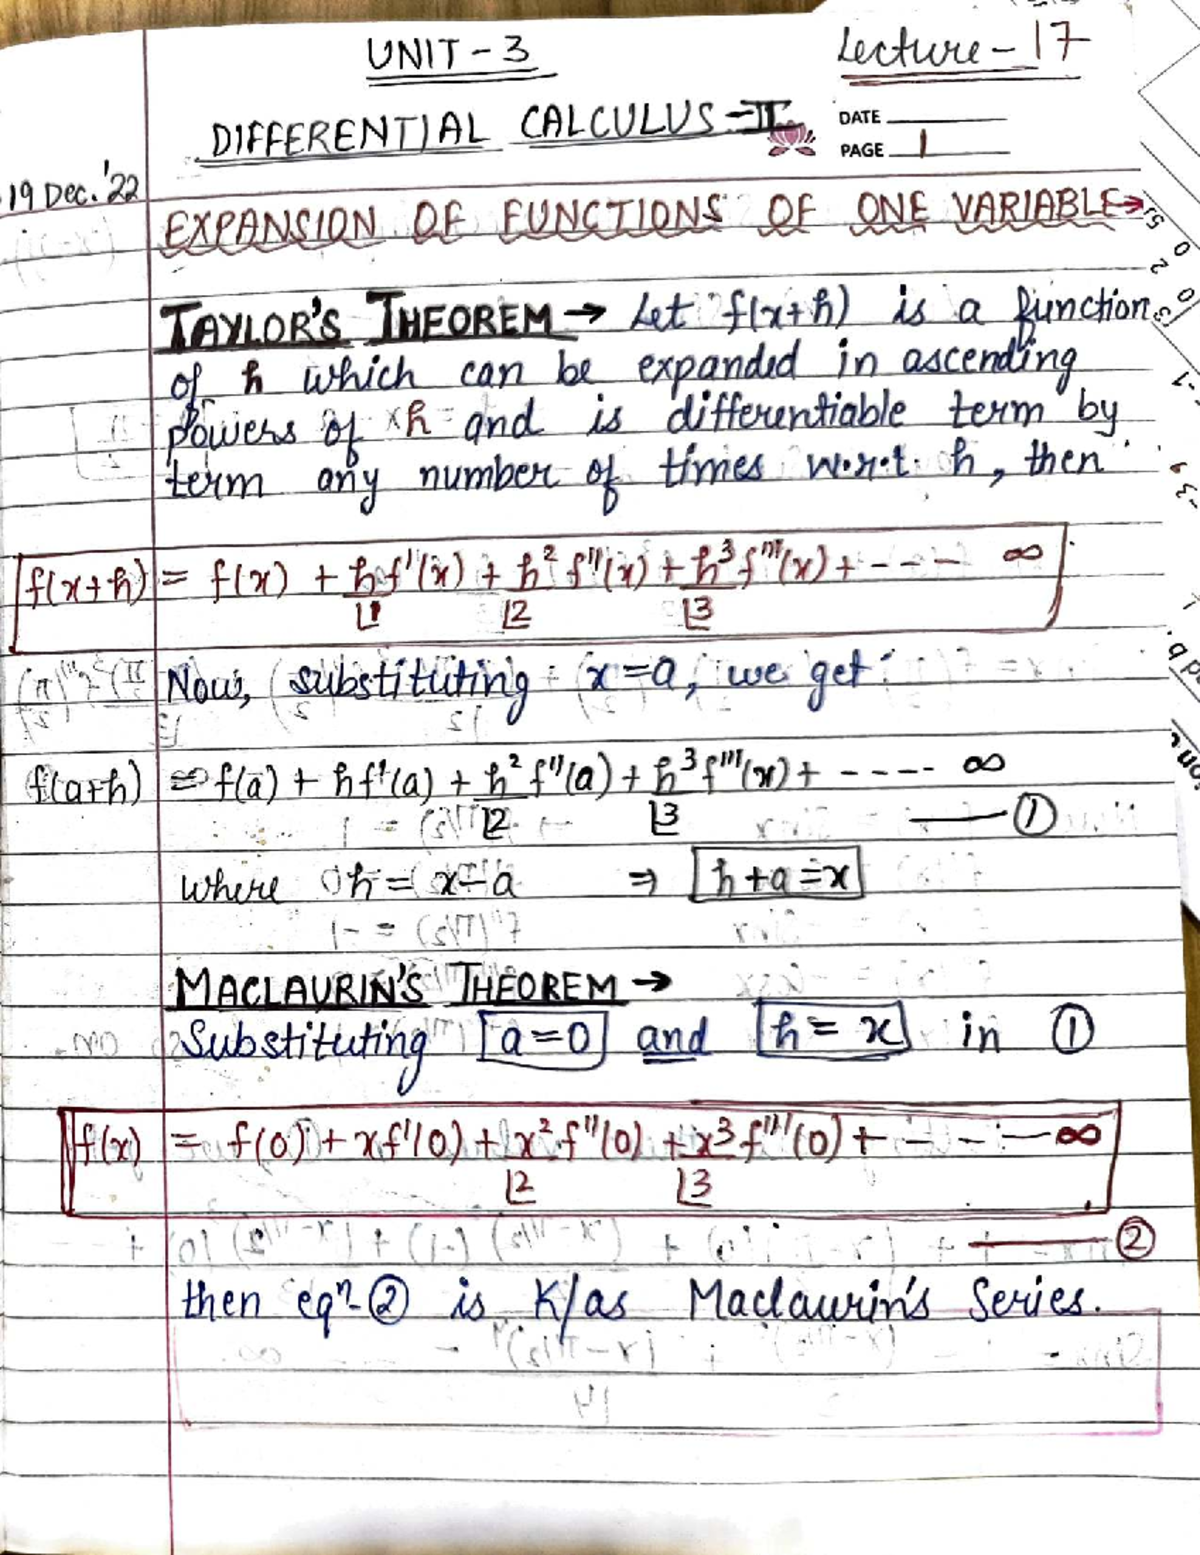 UNIT - 3
Lecture - 17
DIFFERENTIAL CALCULUS - II
DATE
PAGE 1
19 Dec. '22
EXPANSION OF FUNCTIONS OF ONE VARIABLE →
TAYLOR'S THEOREM → Let f(x+h) is a function
of h which can be expanded in ascending
powers of h and is differentiable term by
term any number of times w.r.t. h, then
f(x+h) = f(x) + h/⌊1 f'(x) + h²/⌊2 f''(x) + h³/⌊3 f'''(x) + - - - ∞
Now, substituting x = a, we get
f(a+h) = f(a) + h f'(a) + h²/⌊2 f''(a) + h³/⌊3 f'''(x) + - - - - ∞
—— ①
where h = x - a ⇒ h + a = x
MACLAURIN'S THEOREM →
Substituting a = 0 and h = x in ①
f(x) = f(0) + x f'(0) + x²/⌊2 f''(0) + x³/⌊3 f'''(0) + - - - ∞
—— ②
then eqn- ② is K/as Maclaurin's Series.